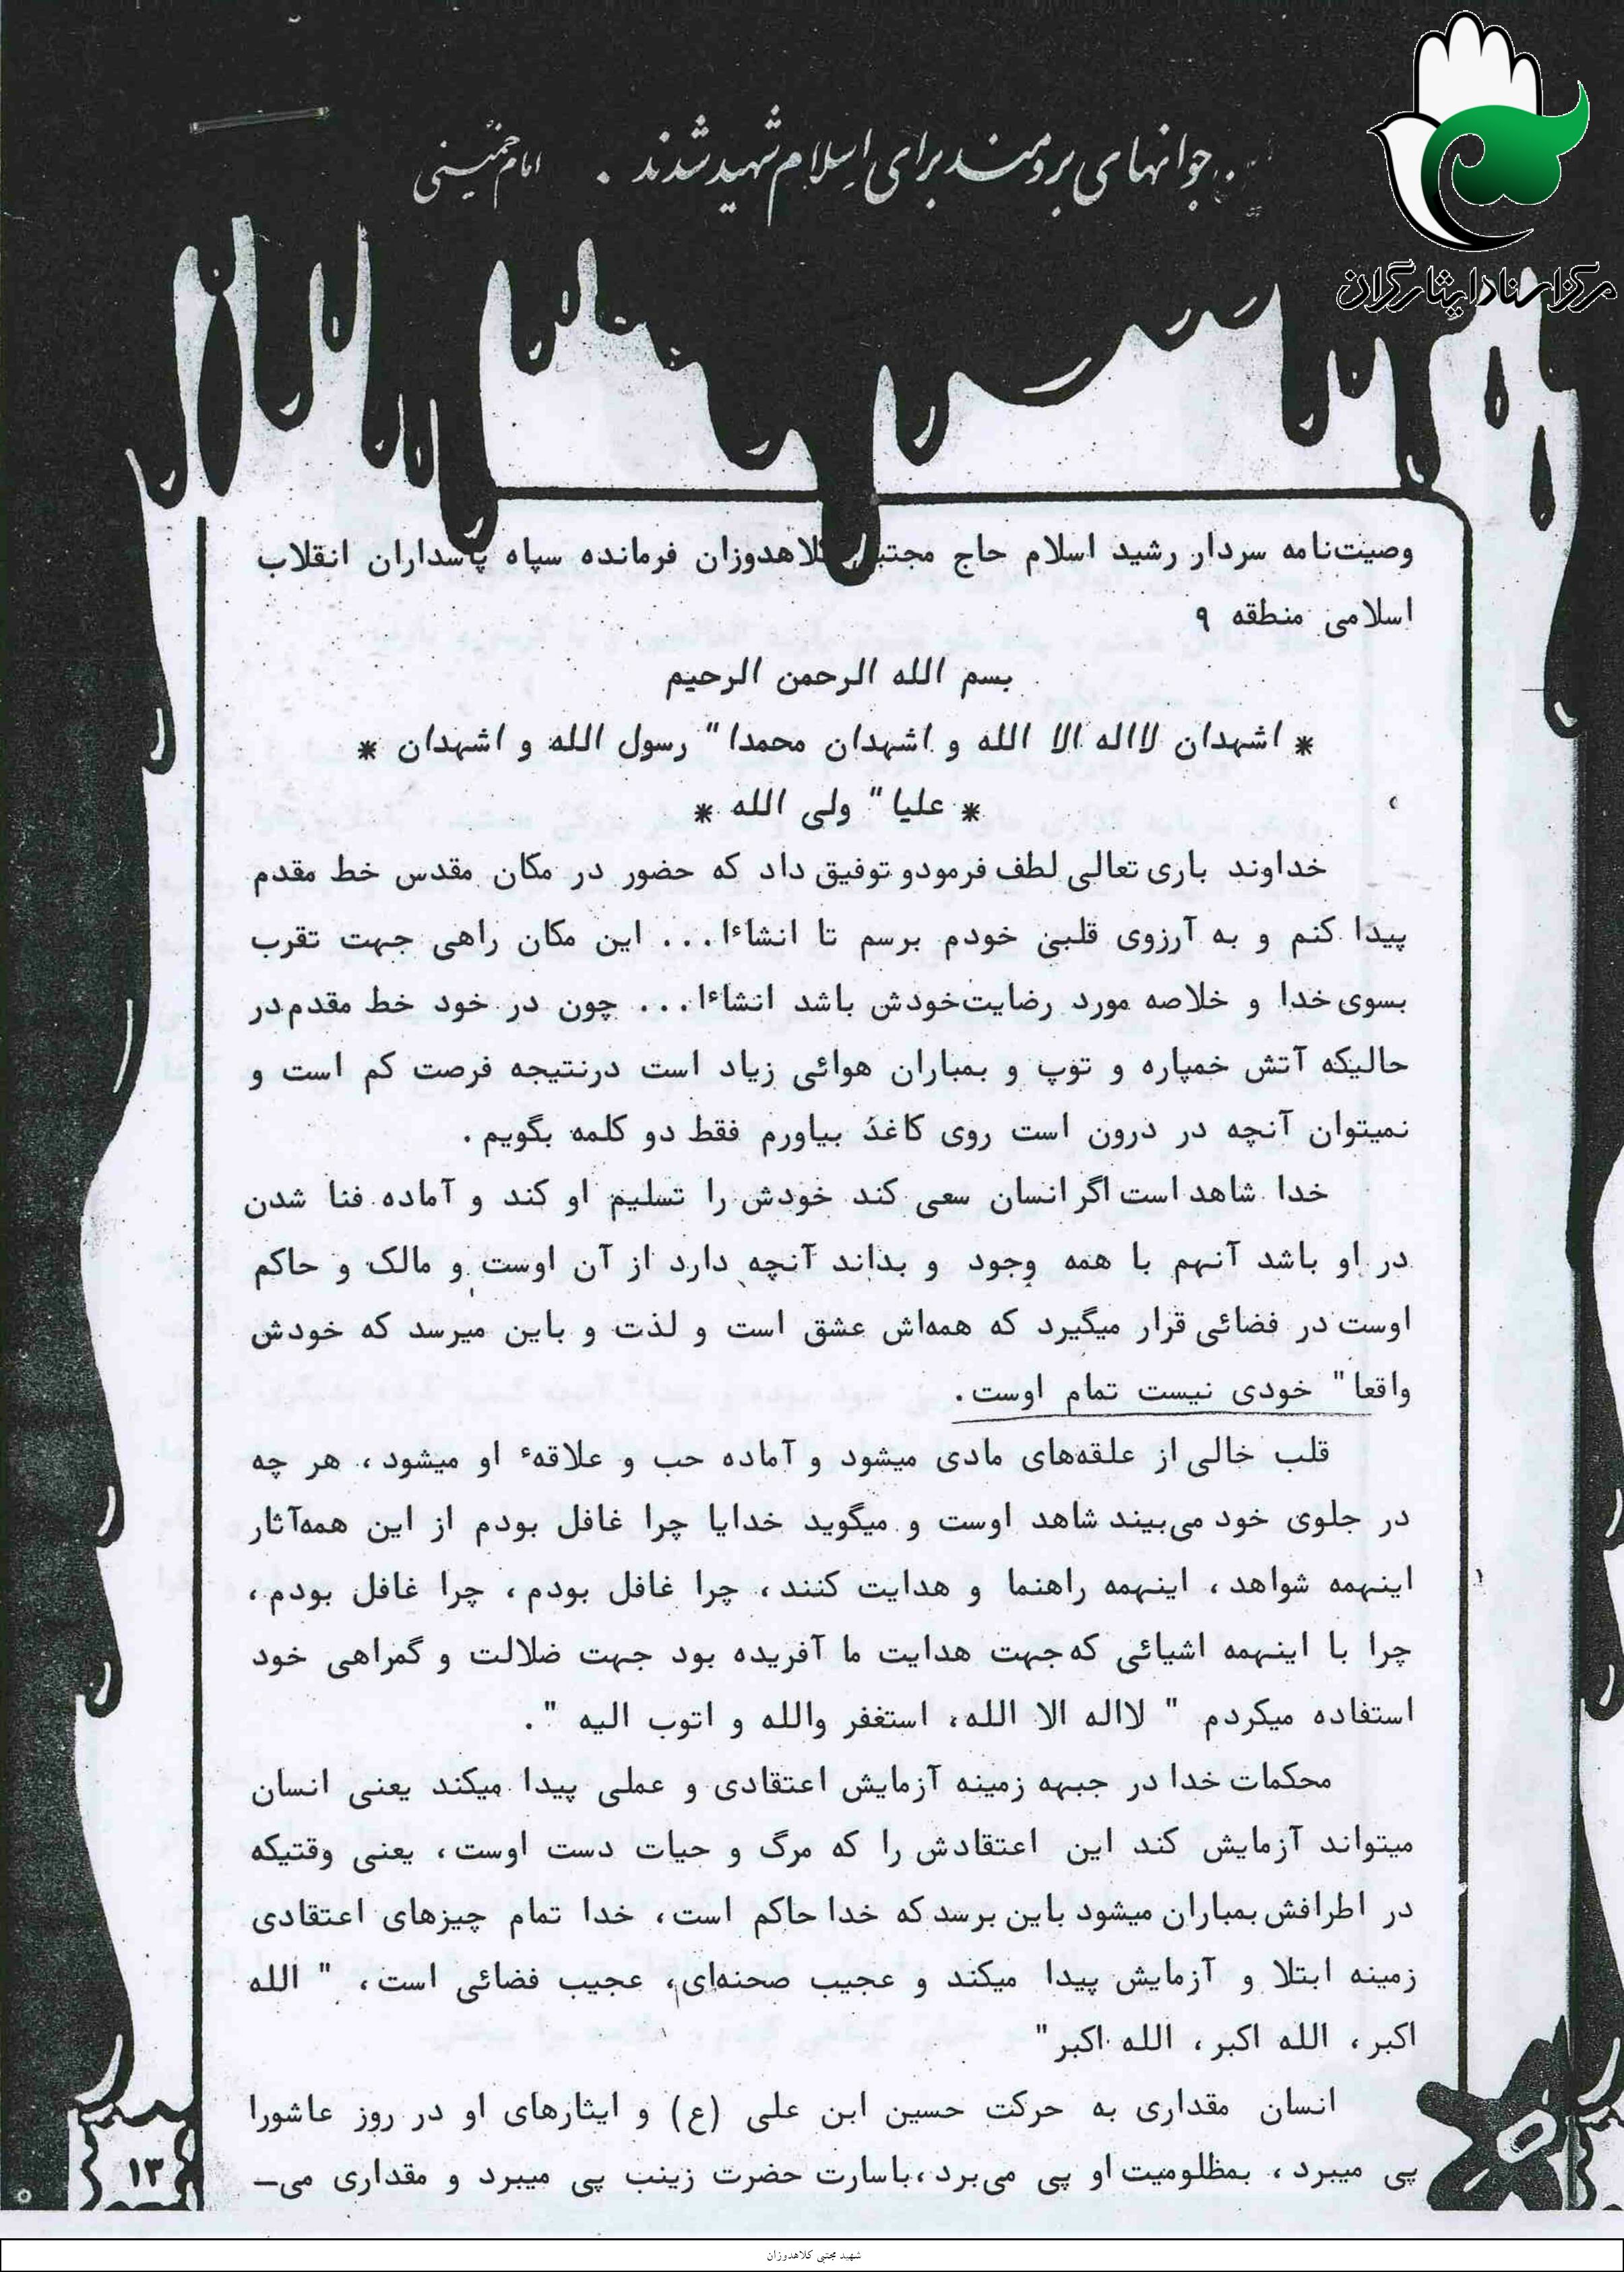 جوانهای برومند برای اسلام شهید شدند . امام خمینی
مرکز اسناد ایثارگران
وصیت‌نامه سردار رشید اسلام حاج مجتبی کلاهدوزان فرمانده سپاه پاسداران انقلاب
اسلامی منطقه ۹
بسم الله الرحمن الرحیم
* اشهدان لااله الا الله و اشهدان محمدا" رسول الله و اشهدان *
* علیا" ولی الله *
خداوند باری تعالی لطف فرمودو توفیق داد که حضور در مکان مقدس خط مقدم
پیدا کنم و به آرزوی قلبی خودم برسم تا انشاءا... این مکان راهی جهت تقرب
بسوی خدا و خلاصه مورد رضایت‌خودش باشد انشاءا... چون در خود خط مقدم‌در
حالیکه آتش خمپاره و توپ و بمباران هوائی زیاد است درنتیجه فرصت کم است و
نمیتوان آنچه در درون است روی کاغذ بیاورم فقط دو کلمه بگویم .
خدا شاهد است اگر انسان سعی کند خودش را تسلیم او کند و آماده فنا شدن
در او باشد آنهم با همه وجود و بداند آنچه دارد از آن اوست و مالک و حاکم
اوست در فضائی قرار میگیرد که همه‌اش عشق است و لذت و باین میرسد که خودش
واقعا" خودی نیست تمام اوست .
قلب خالی از علقه‌های مادی میشود و آماده حب و علاقهٔ او میشود ، هر چه
در جلوی خود می‌بیند شاهد اوست و میگوید خدایا چرا غافل بودم از این همه‌آثار
اینهمه شواهد ، اینهمه راهنما و هدایت کنند ، چرا غافل بودم ، چرا غافل بودم ،
چرا با اینهمه اشیائی که جهت هدایت ما آفریده بود جهت ضلالت و گمراهی خود
استفاده میکردم " لااله الا الله ، استغفر والله و اتوب الیه " .
محکمات خدا در جبهه زمینه آزمایش اعتقادی و عملی پیدا میکند یعنی انسان
میتواند آزمایش کند این اعتقادش را که مرگ و حیات دست اوست ، یعنی وقتیکه
در اطرافش بمباران میشود باین برسد که خدا حاکم است ، خدا تمام چیزهای اعتقادی
زمینه ابتلا و آزمایش پیدا میکند و عجیب صحنه‌ای ، عجیب فضائی است ، " الله
اکبر ، الله اکبر ، الله اکبر"
انسان مقداری به حرکت حسین ابن علی (ع) و ایثارهای او در روز عاشورا
پی میبرد ، بمظلومیت او پی می‌برد ، باسارت حضرت زینب پی میبرد و مقداری می‌ـ
۱۳
شهید مجتبی کلاهدوزان